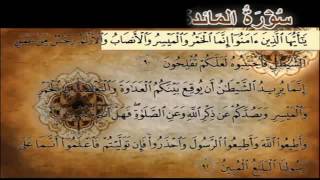 سُورَةُ المائدة
يَٰٓأَيُّهَا ٱلَّذِينَ ءَامَنُوٓا۟ إِنَّمَا ٱلْخَمْرُ وَٱلْمَيْسِرُ وَٱلْأَنصَابُ وَٱلْأَزْلَٰمُ رِجْسٌ مِّنْ عَمَلِ
ٱلشَّيْطَٰنِ فَٱجْتَنِبُوهُ لَعَلَّكُمْ تُفْلِحُونَ ٩٠
إِنَّمَا يُرِيدُ ٱلشَّيْطَٰنُ أَن يُوقِعَ بَيْنَكُمُ ٱلْعَدَٰوَةَ وَٱلْبَغْضَآءَ فِى ٱلْخَمْرِ
وَٱلْمَيْسِرِ وَيَصُدَّكُمْ عَن ذِكْرِ ٱللَّهِ وَعَنِ ٱلصَّلَوٰةِ فَهَلْ
وَأَطِيعُوا۟ ٱللَّهَ وَأَطِيعُوا۟ ٱلرَّسُولَ وَٱحْذَرُوا۟ فَإِن تَوَلَّيْتُمْ فَٱعْلَمُوٓا۟ أَنَّمَا عَلَىٰ
رَسُولِنَا ٱلْبَلَٰغُ ٱلْمُبِينُ